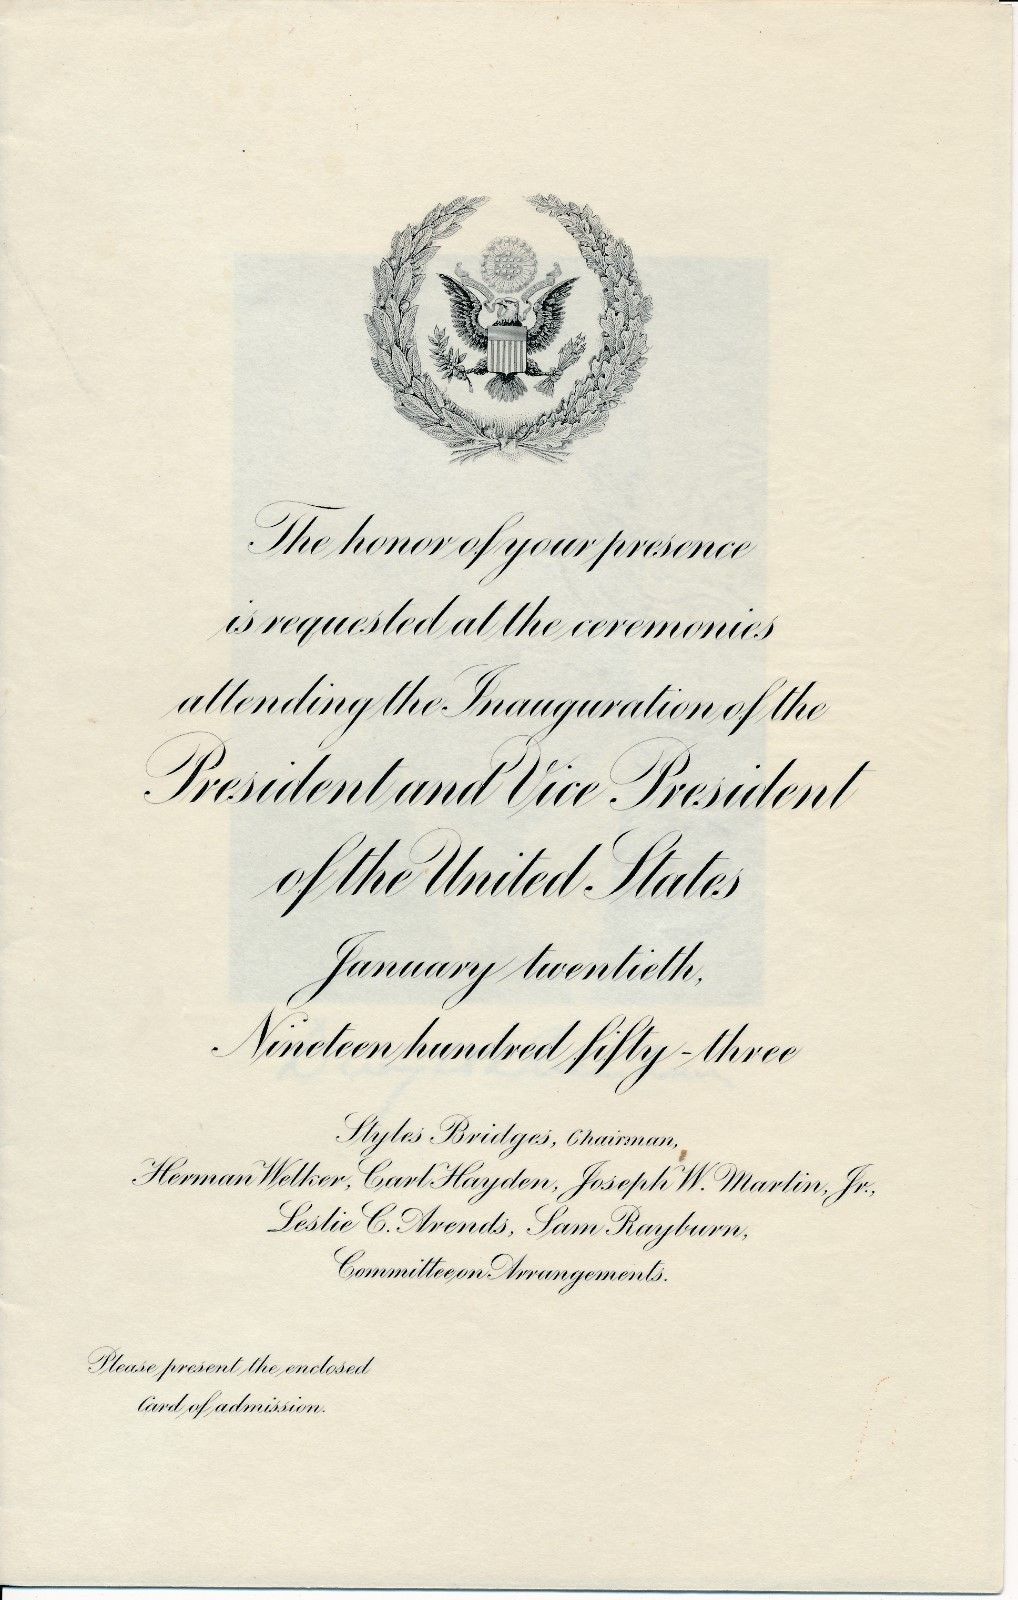 The honor of your presence
is requested at the ceremonies
attending the Inauguration of the
President and Vice President
of the United States
January twentieth,
Nineteen hundred fifty-three
Styles Bridges, Chairman,
Herman Welker, Carl Hayden, Joseph W. Martin, Jr.,
Leslie C. Arends, Sam Rayburn,
Committee on Arrangements.
Please present the enclosed
Card of admission.